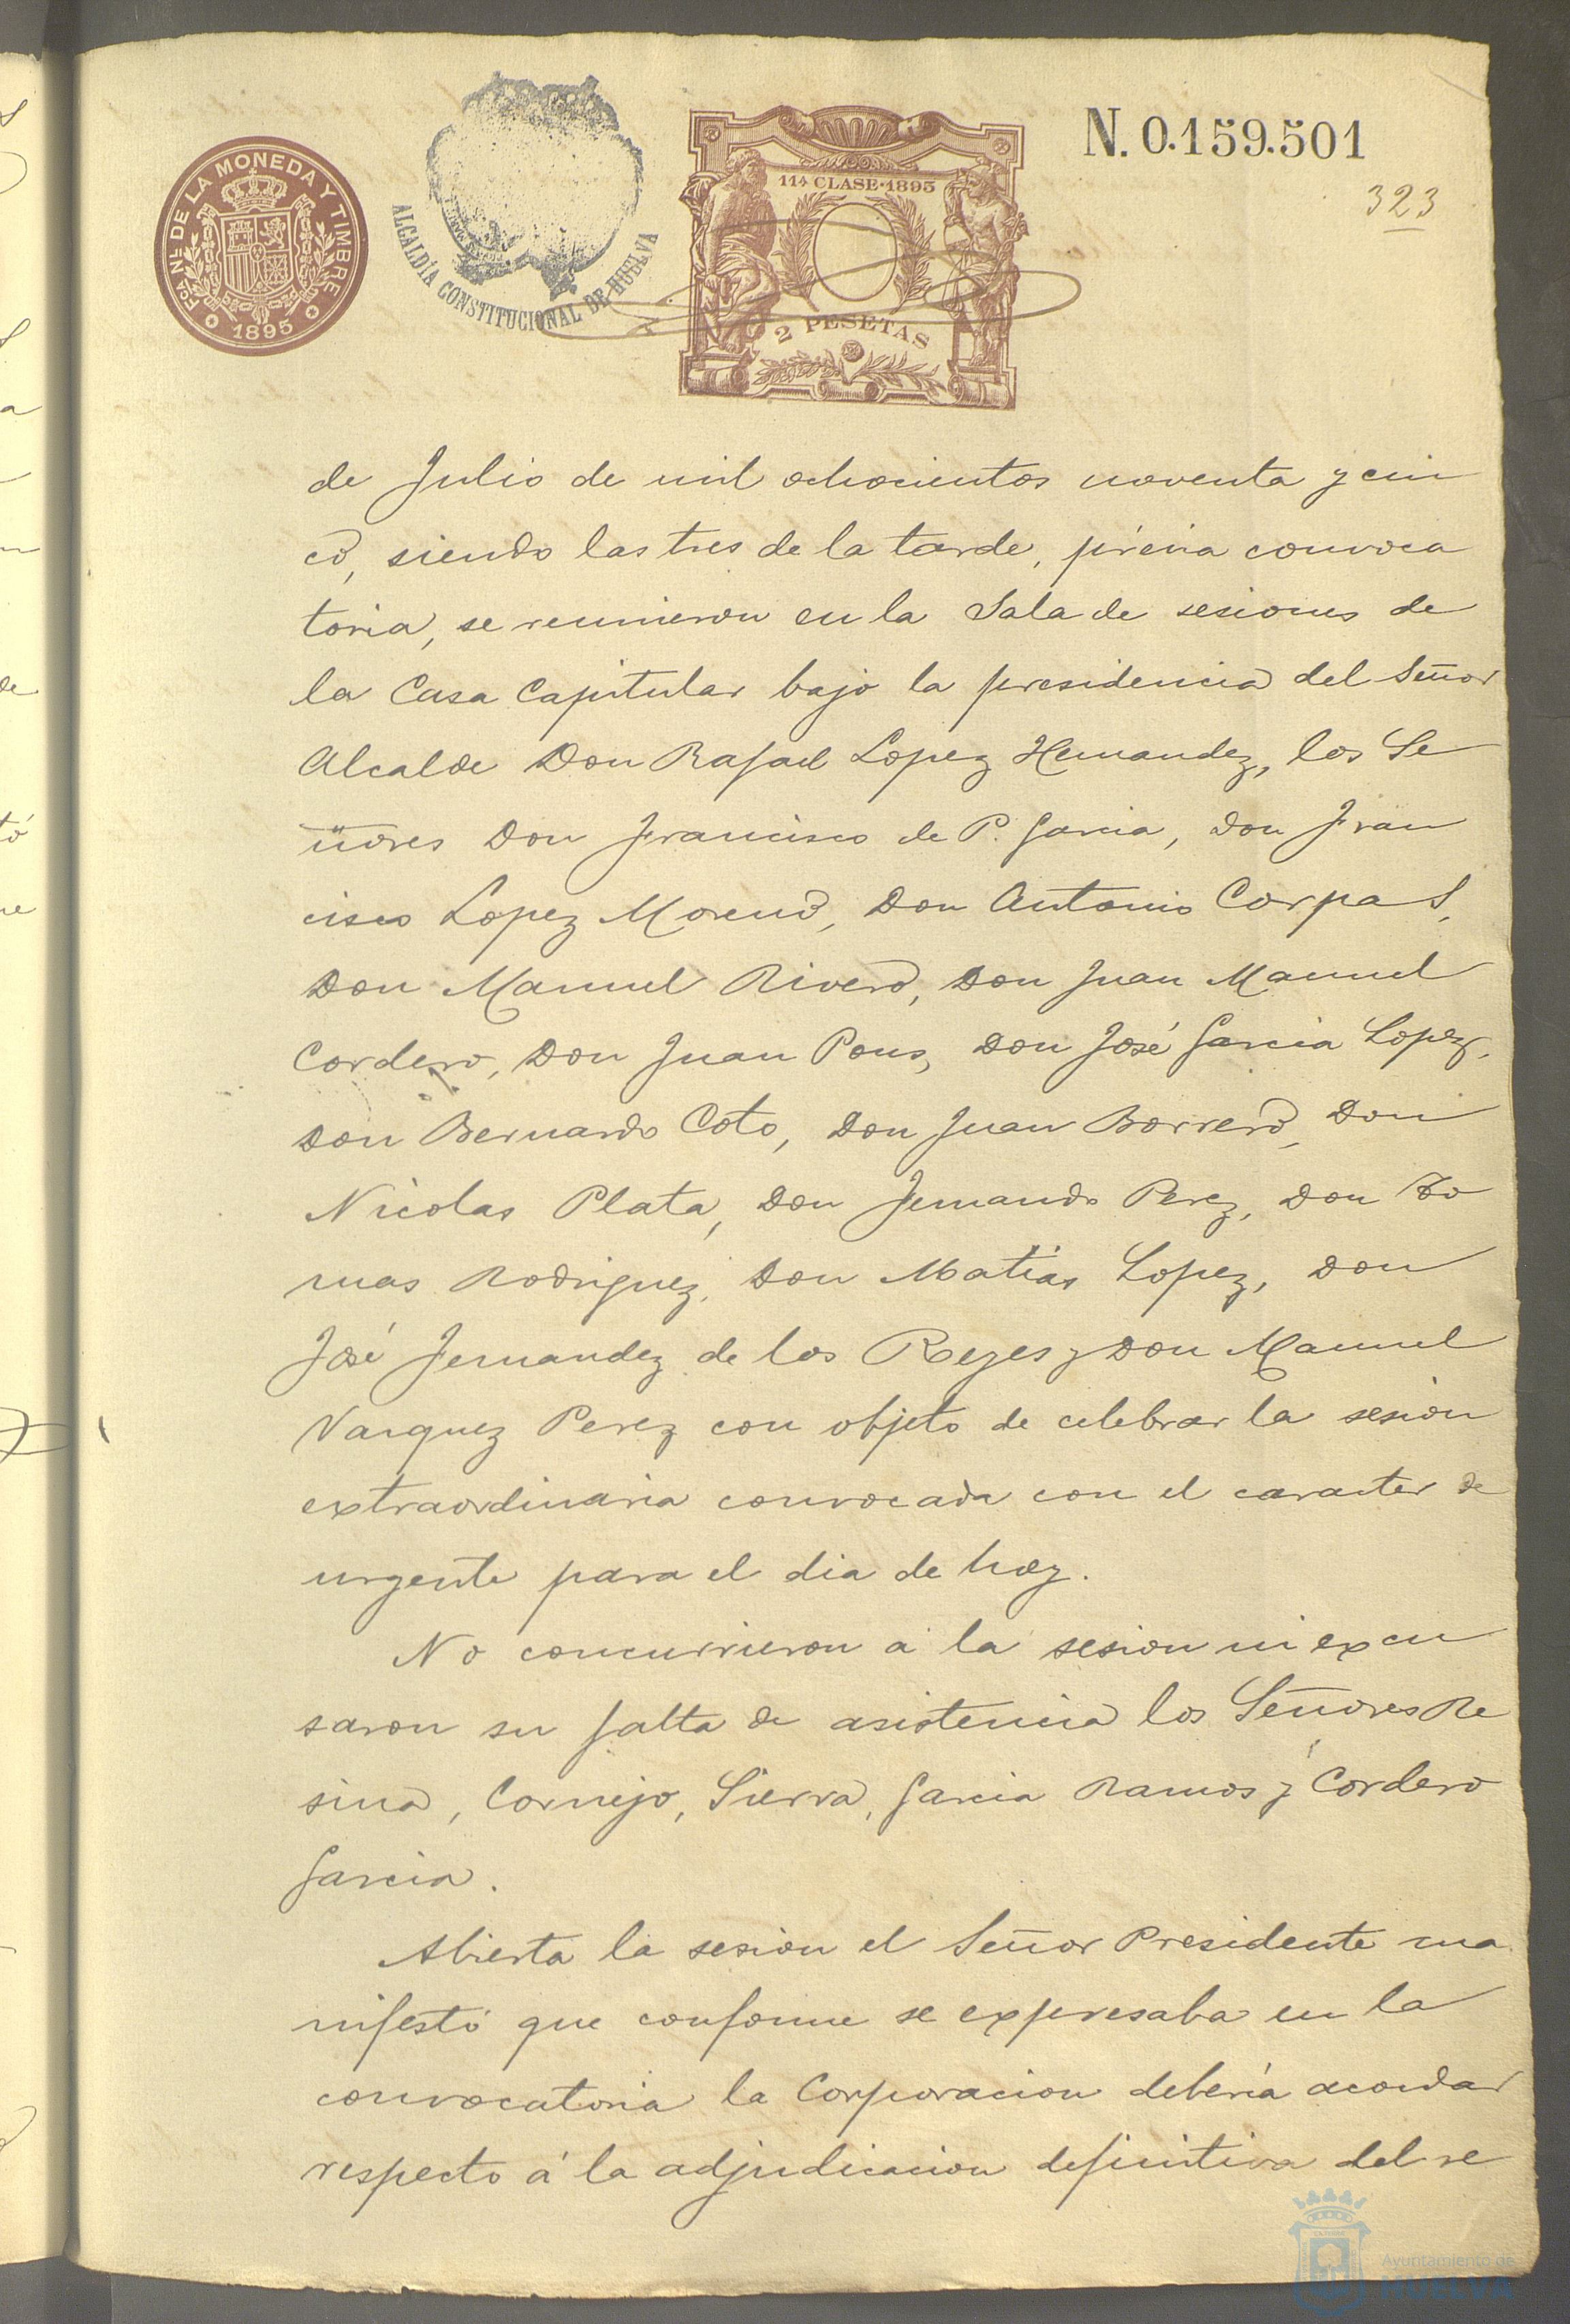 FCA. NL. DE LA MONEDA Y TIMBRE
1895
ALCALDÍA CONSTITUCIONAL DE HUELVA
11ª CLASE·1895
2 PESETAS
N. 0.159.501
323
de Julio de mil ochocientos noventa y cin
co, siendo las tres de la tarde, prévia convoca
toria, se reunieron en la Sala de sesiones de
la Casa Capitular bajo la presidencia del Señor
Alcalde Don Rafael Lopez Hernandez, los Se
ñores Don Francisco de P. Garcia, Don Fran
cisco Lopez Moreno, Don Antonio Corpas,
Don Manuel Rivero, Don Juan Manuel
Cordero, Don Juan Pons, Don José Garcia Lopez,
Don Bernardo Coto, Don Juan Borrero, Don
Nicolas Plata, Don Fernando Perez, Don To
mas Rodriguez, Don Matias Lopez, Don
José Fernandez de los Reyes y Don Manuel
Vazquez Perez con objeto de celebrar la sesion
extraordinaria convocada con el caracter de
urgente para el dia de hoy.
No concurrieron á la sesion ni excu
saron su falta de asistencia los Señores Re
sina, Cornejo, Sierra, Garcia Ramos y Cordero
Garcia.
Abierta la sesion el Señor Presidente ma
nifestó que conforme se expresaba en la
convocatoria la Corporacion debería acordar
respecto á la adjudicacion definitiva del re
Ayuntamiento de
HUELVA